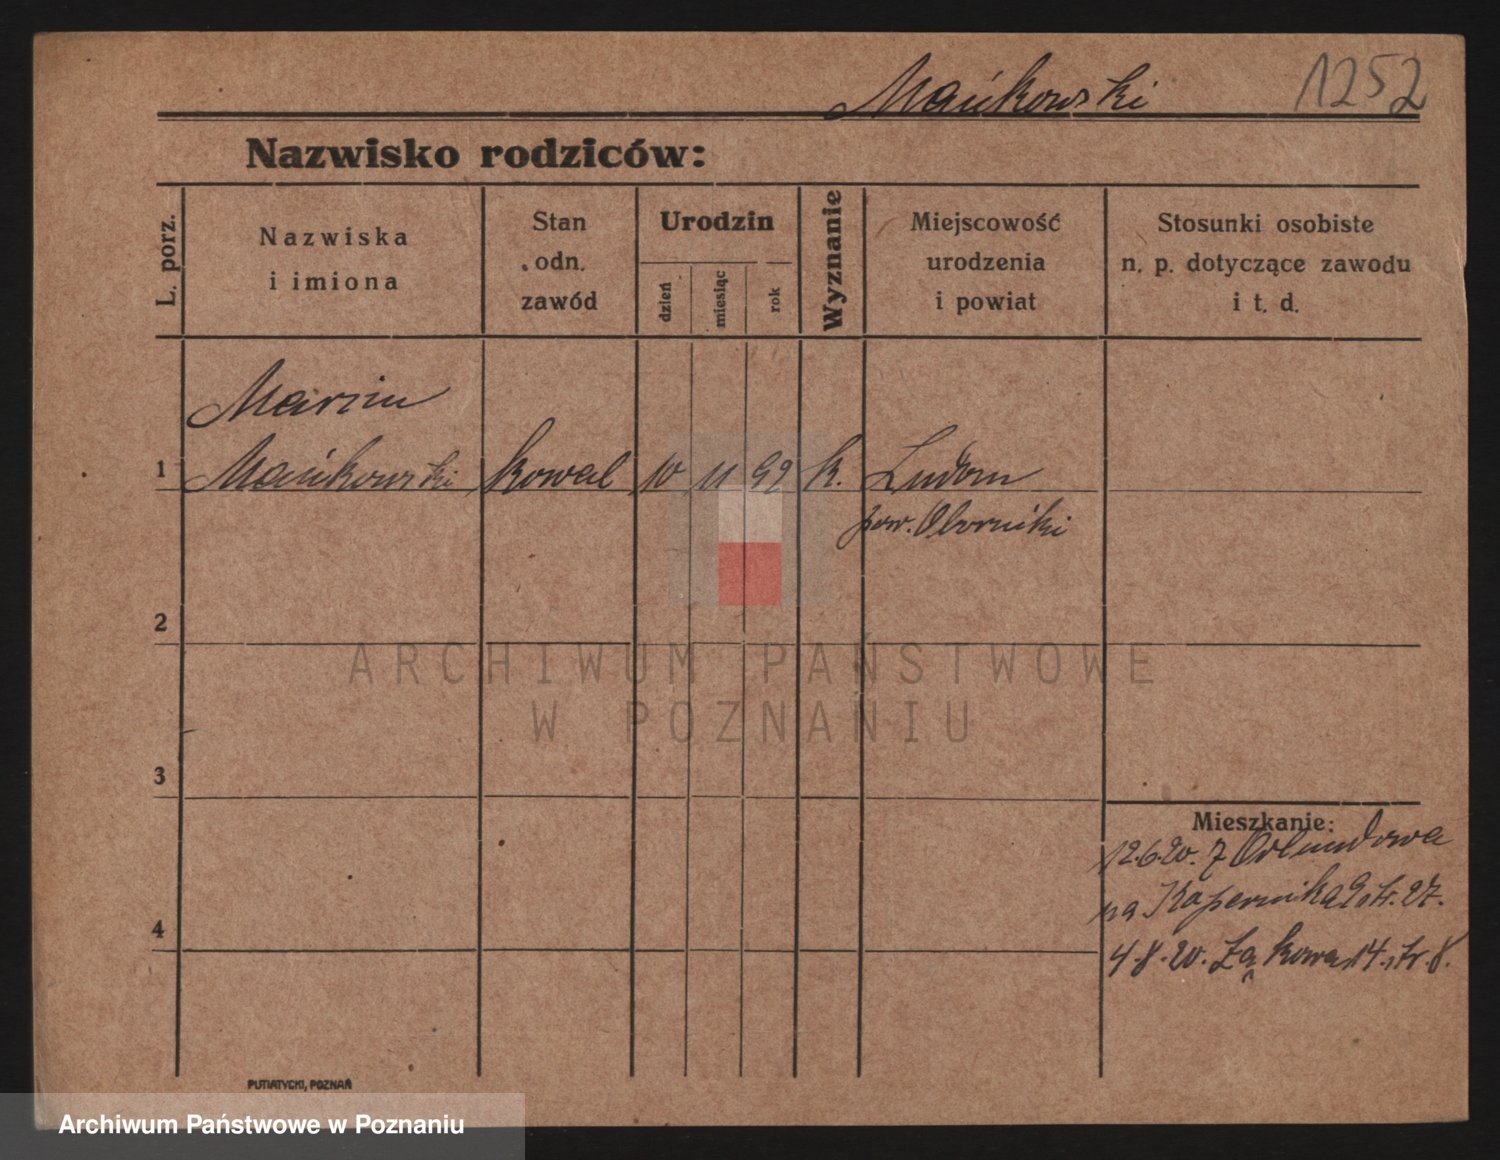 Mańkowski 1252
Nazwisko rodziców:
L. porz.
Nazwiska
i imiona
Stan
odn.
zawód
Urodzin
dzień
miesiąc
rok
Wyznanie
Miejscowość
urodzenia
i powiat
Stosunki osobiste
n. p. dotyczące zawodu
i t. d.
Marcin
1 Mańkowski kowal 10 11 92 k. Ludom
pow. Oborniki
2
3
4
Mieszkanie:
12.6.20. z
na Kopernika 9 str. 27.
4.8.20. Łąkowa 14. str. 8.
PUTIATYCKI, POZNAŃ
ARCHIWUM PAŃSTWOWE
W POZNANIU
Archiwum Państwowe w Poznaniu